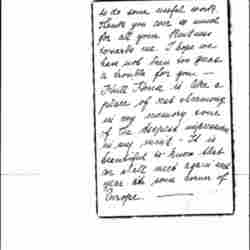 to do some useful work.
Thank you ever so much
for all your kindness
towards me. I hope we
have not been too great
a trouble for you —
is like a
place of
in my memory some
of the deepest impressions
in my mind. It is
beautiful to know that
we shall meet again next
year in some corner of
Europe.